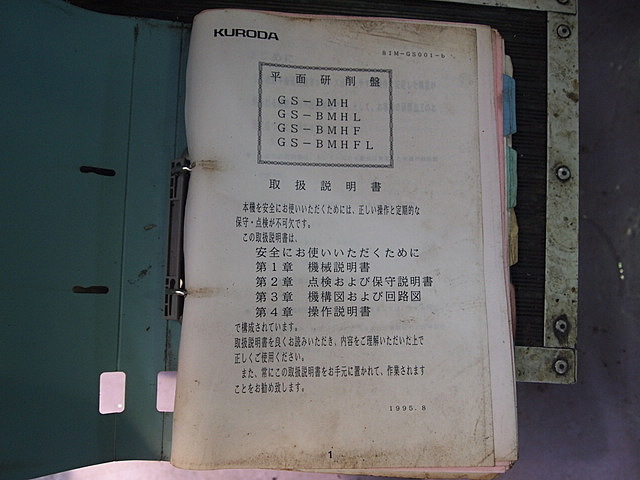 KURODA
SIM-GS001-b
平面研削盤
GS-BMH
GS-BMHL
GS-BMHF
GS-BMHFL
取扱説明書
本機を安全にお使いいただくためには、正しい操作と定期的な
保守・点検が不可欠です。
この取扱説明書は、
安全にお使いいただくために
第1章 機械説明書
第2章 点検および保守説明書
第3章 機構図および回路図
第4章 操作説明書
で構成されています。
取扱説明書を良くお読みいただき、内容をご理解いただいた上で
正しくご使用ください。
また、常にこの取扱説明書をお手元に置かれて、作業されます
ことをお勧め致します。
1995.8
1